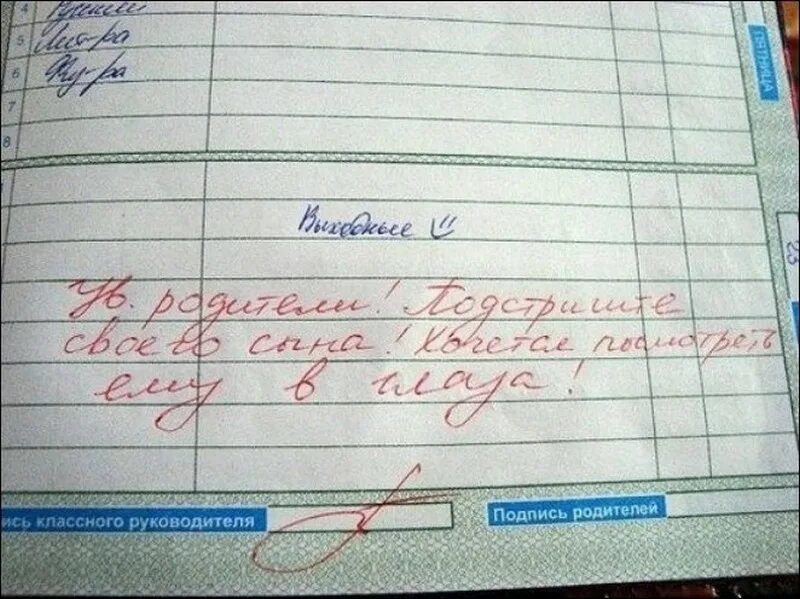 4 Русский
5 Лит-ра
6 Фу-ра
7
8
ПЯТНИЦА
Выходные
23
Ув. родители! Подстригите
своего сына! Хочется посмотреть
ему в глаза!
ись классного руководителя
Подпись родителей